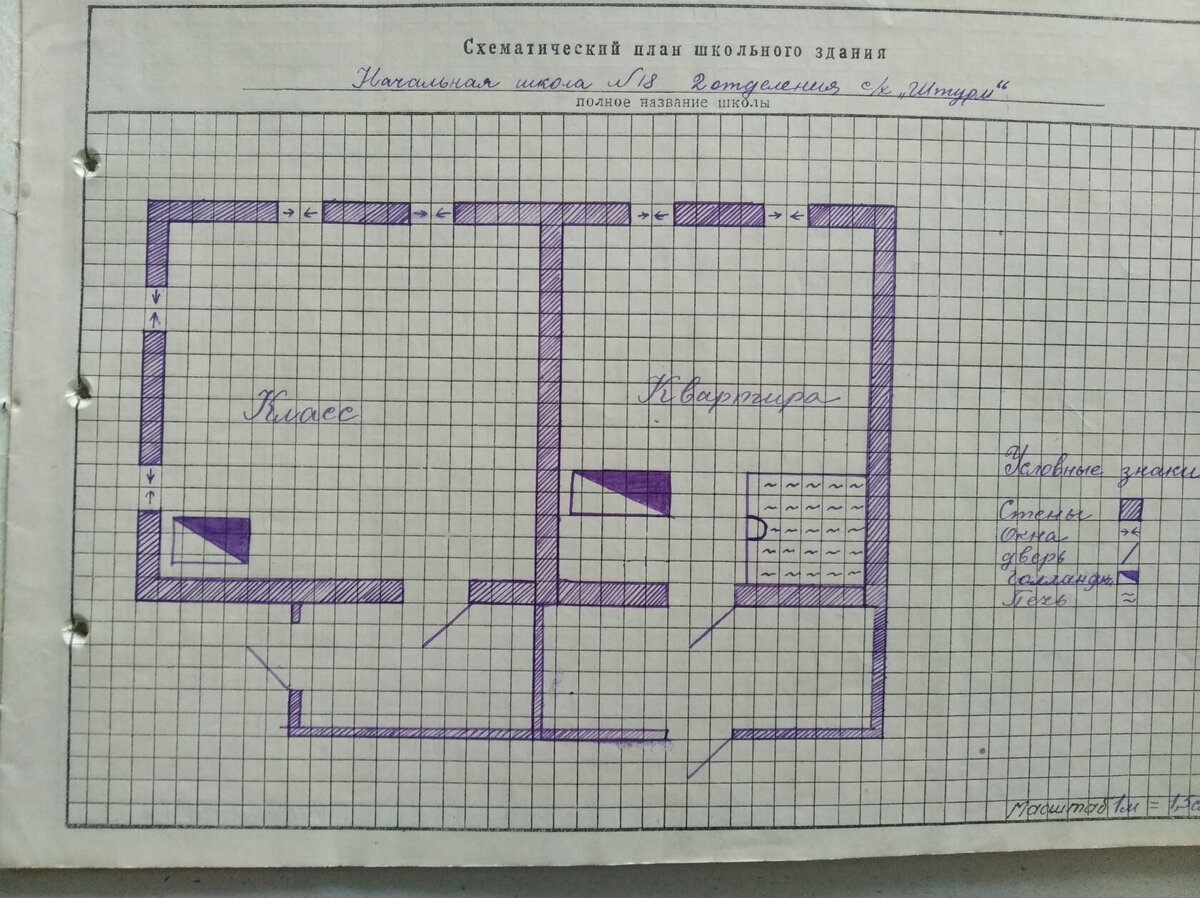 Схематический план школьного здания
Начальная школа №18 2 отделения с/х „Штурм“
полное название школы
Класс
Квартира
Условные знаки
Стены
Окна
дверь
Голландк
Печь
Масштаб 1м = 1,5с